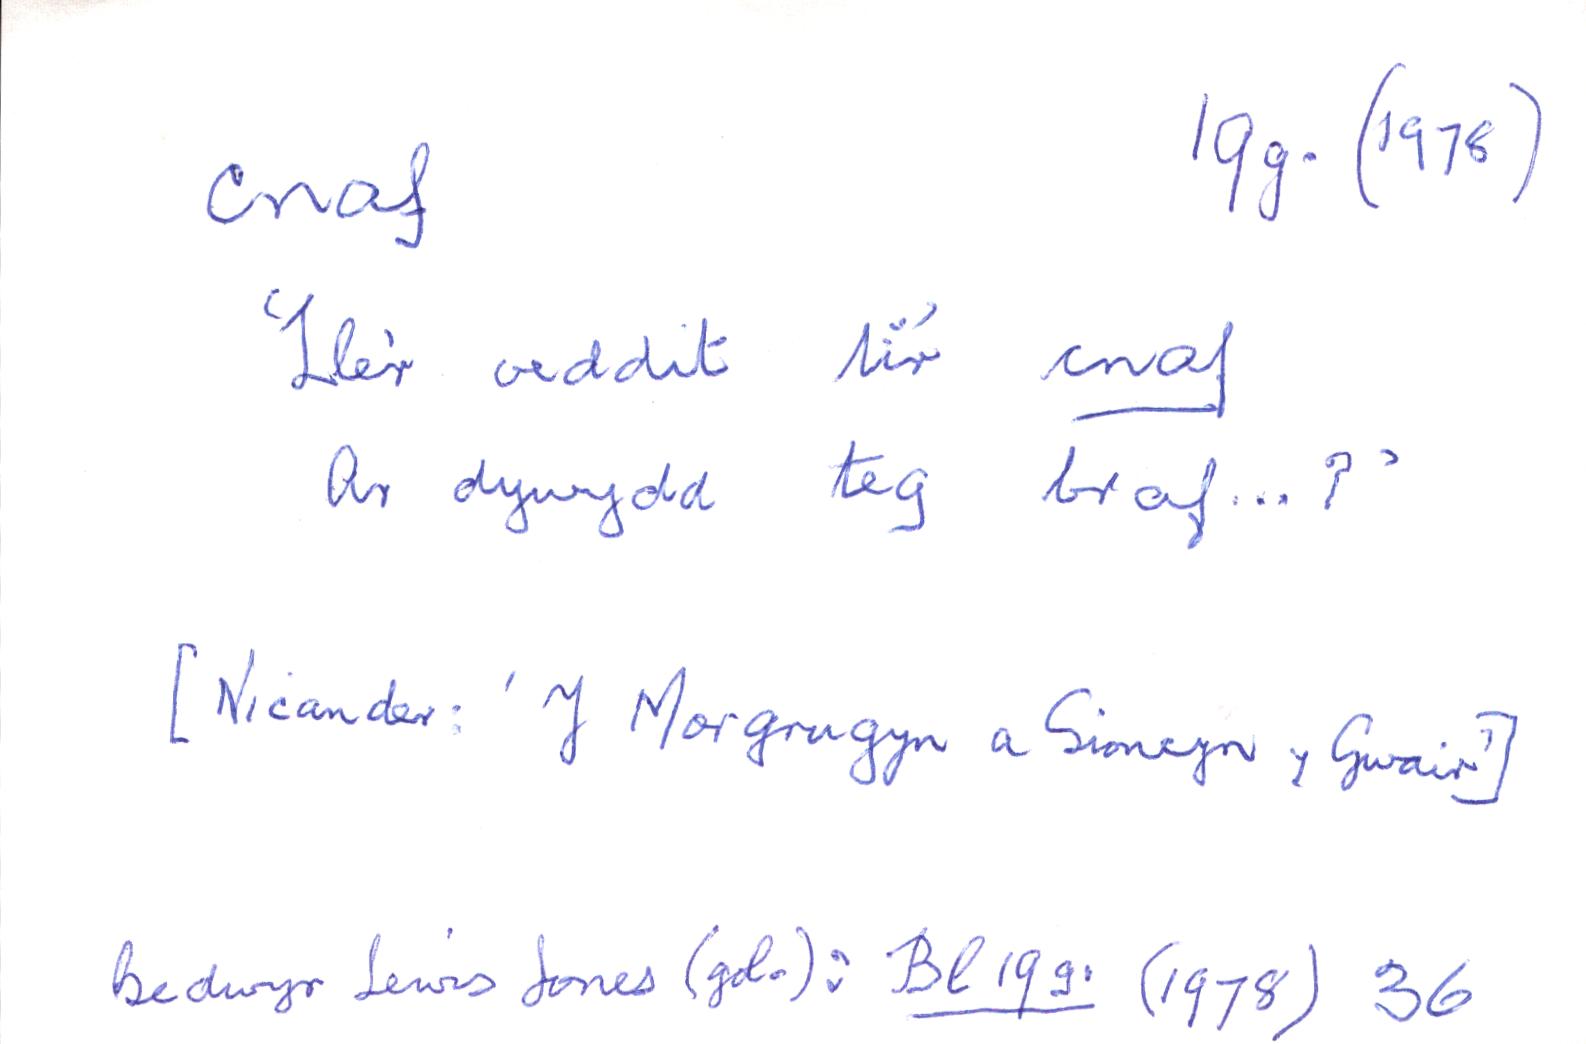 cnaf 19g. (1978)
‘Lle'r oeddit ti'r cnaf
Ar dywydd teg braf...?’
[Nicander: ‘Y Morgrugyn a Sioncyn y Gwair’]
Bedwyr Lewis Jones (gol.): Bl 19g. (1978) 36